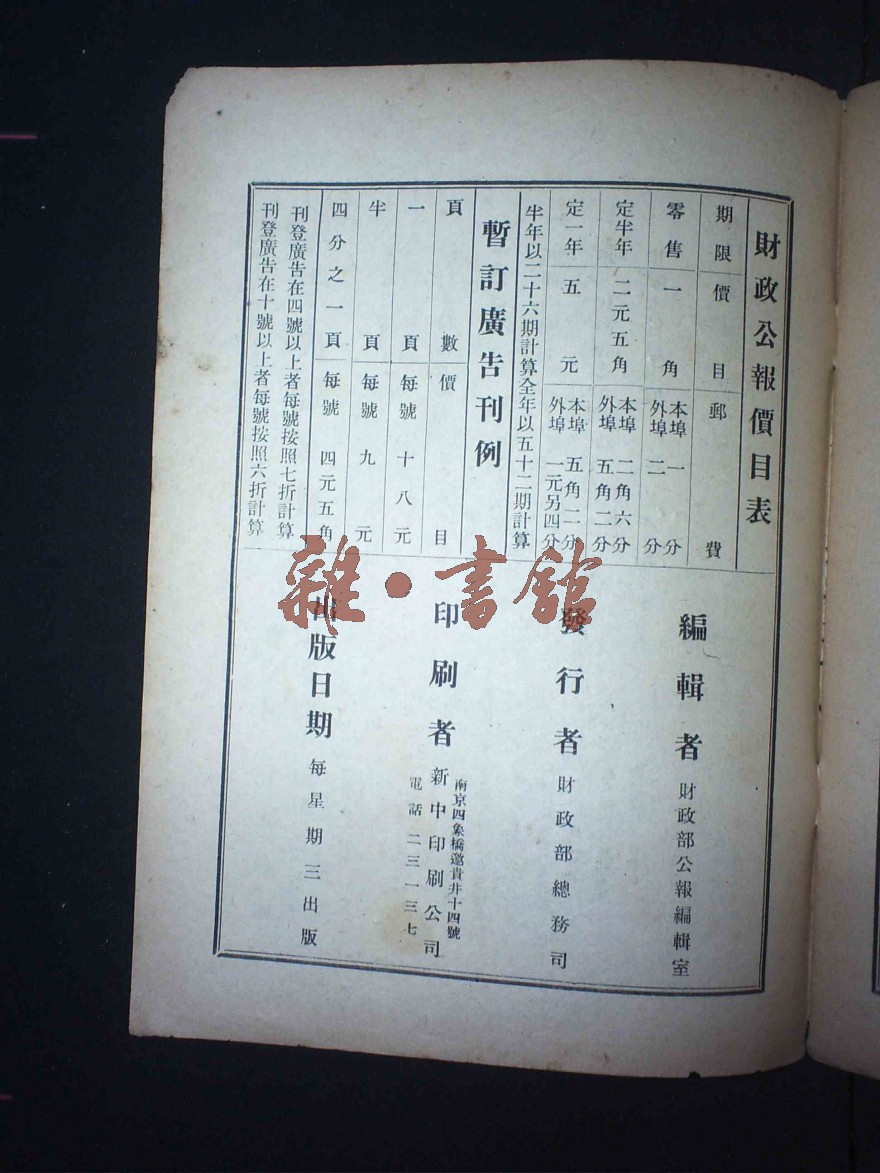 財政公報價目表
期限 價目 郵費
零售 一角 本埠一分 外埠二分
定半年 二元五角 本埠二角六分 外埠五角二分
定一年 五元 本埠五角二分 外埠一元另四分
半年以二十六期計算全年以五十二期計算
暫訂廣告刊例
頁數 價目
一頁 每號十八元
半頁 每號九元
四分之一頁 每號四元五角
刊登廣告在四號以上者每號按照七折計算
刊登廣告在十號以上者每號按照六折計算
編輯者 財政部公報編輯室
發行者 財政部總務司
印刷者 新中印刷公司
南京四象橋邀貴井十四號
電話二三一三七
出版日期 每星期三出版
雜·書館